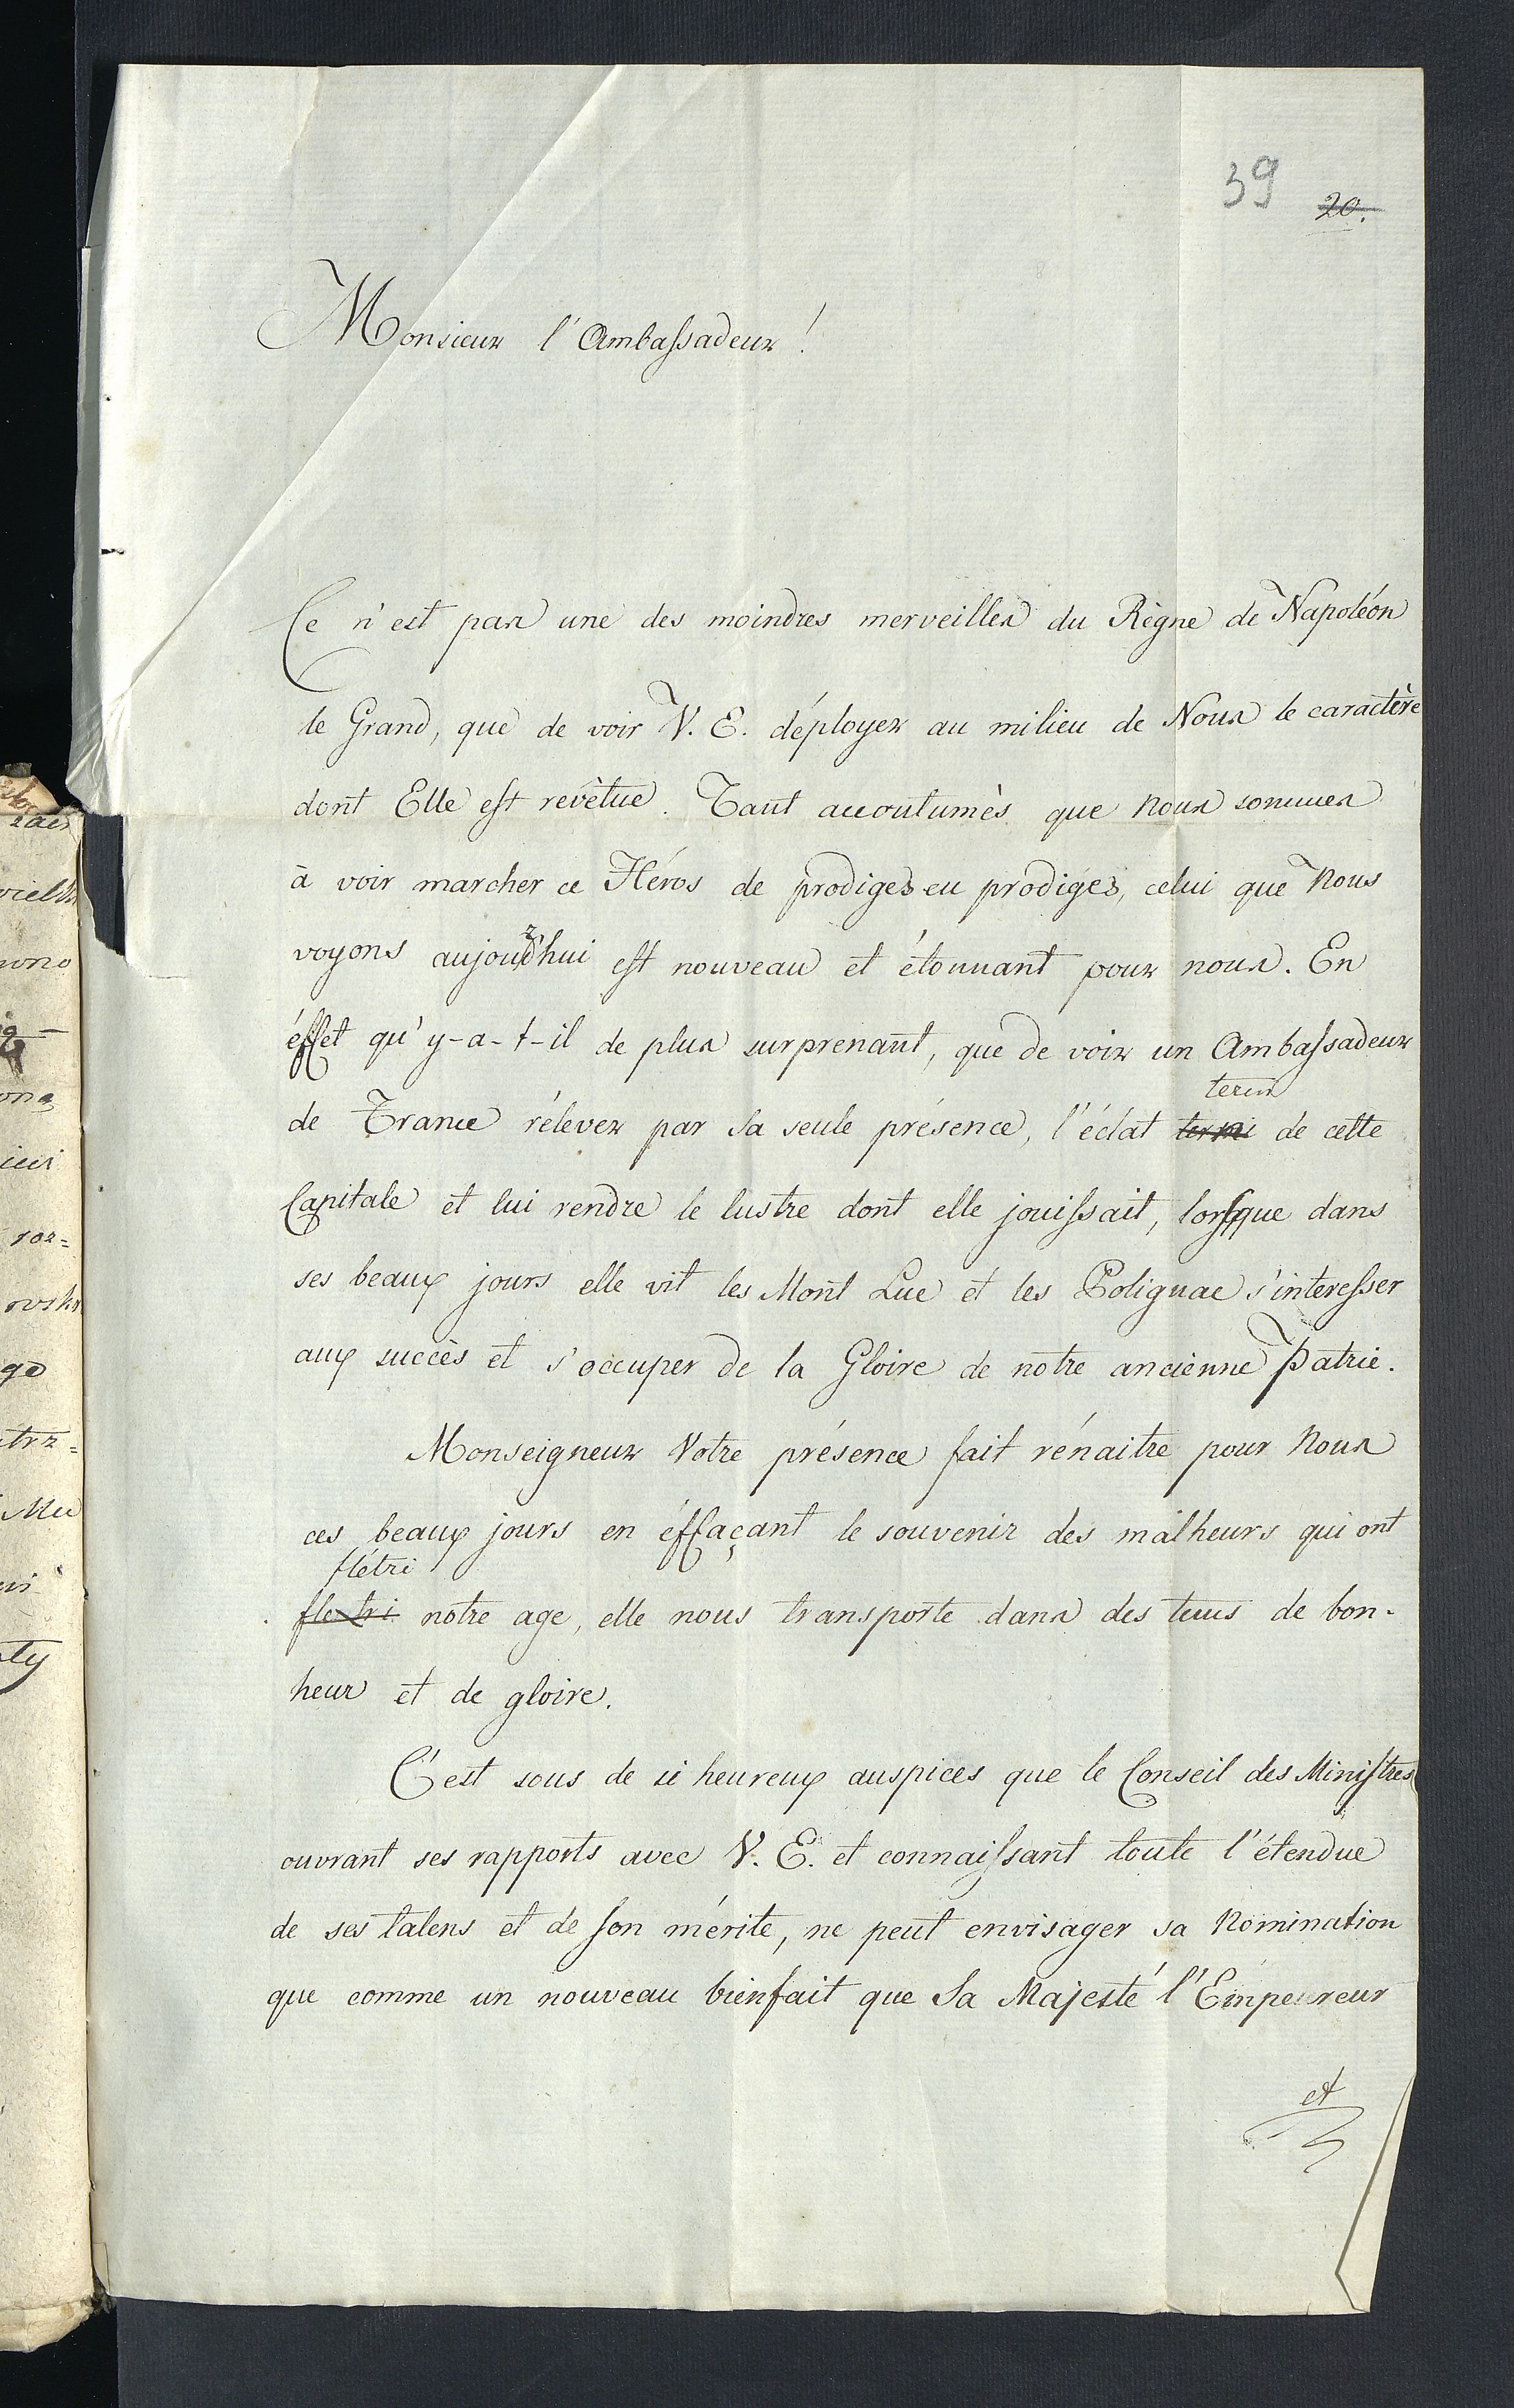 39 20.
Monsieur l'Ambassadeur!
Ce n'est pas une des moindres merveilles du Règne de Napoléon
le Grand, que de voir V. E. déployer au milieu de Nous le caractère
dont Elle est revètue. Tant accoutumès que Nous sommes
à voir marcher ce Héros de prodiges en prodiges, celui que Nous
voyons aujourd'hui est nouveau et étonnant pour nous. En
éffet qu'y-a-t-il de plus surprenant, que de voir un Ambassadeur
terni
de France rélever par Sa seule présence, l'éclat terni de cette
Capitale et lui rendre le lustre dont elle jouissait, lorsque dans
ses beaux jours elle vit les Mont Luc et les Polignac s'interesser
aux succès et s'occuper de la Gloire de notre ancienne Patrie.
Monseigneur Votre présence fait rénaitre pour Nous
ces beaux jours en éffaçant le souvenir des malheurs qui ont
flétri
flextri notre age, elle nous transporte dans des tems de bon-
heur et de gloire.
C'est sous de si heureux auspices que le Conseil des Ministres
ouvrant ses rapports avec V. E. et connaissant toute l'étendue
de ses talens et de son mérite, ne peut envisager sa Nomination
que comme un nouveau bienfait que Sa Majesté l'Empereur
et